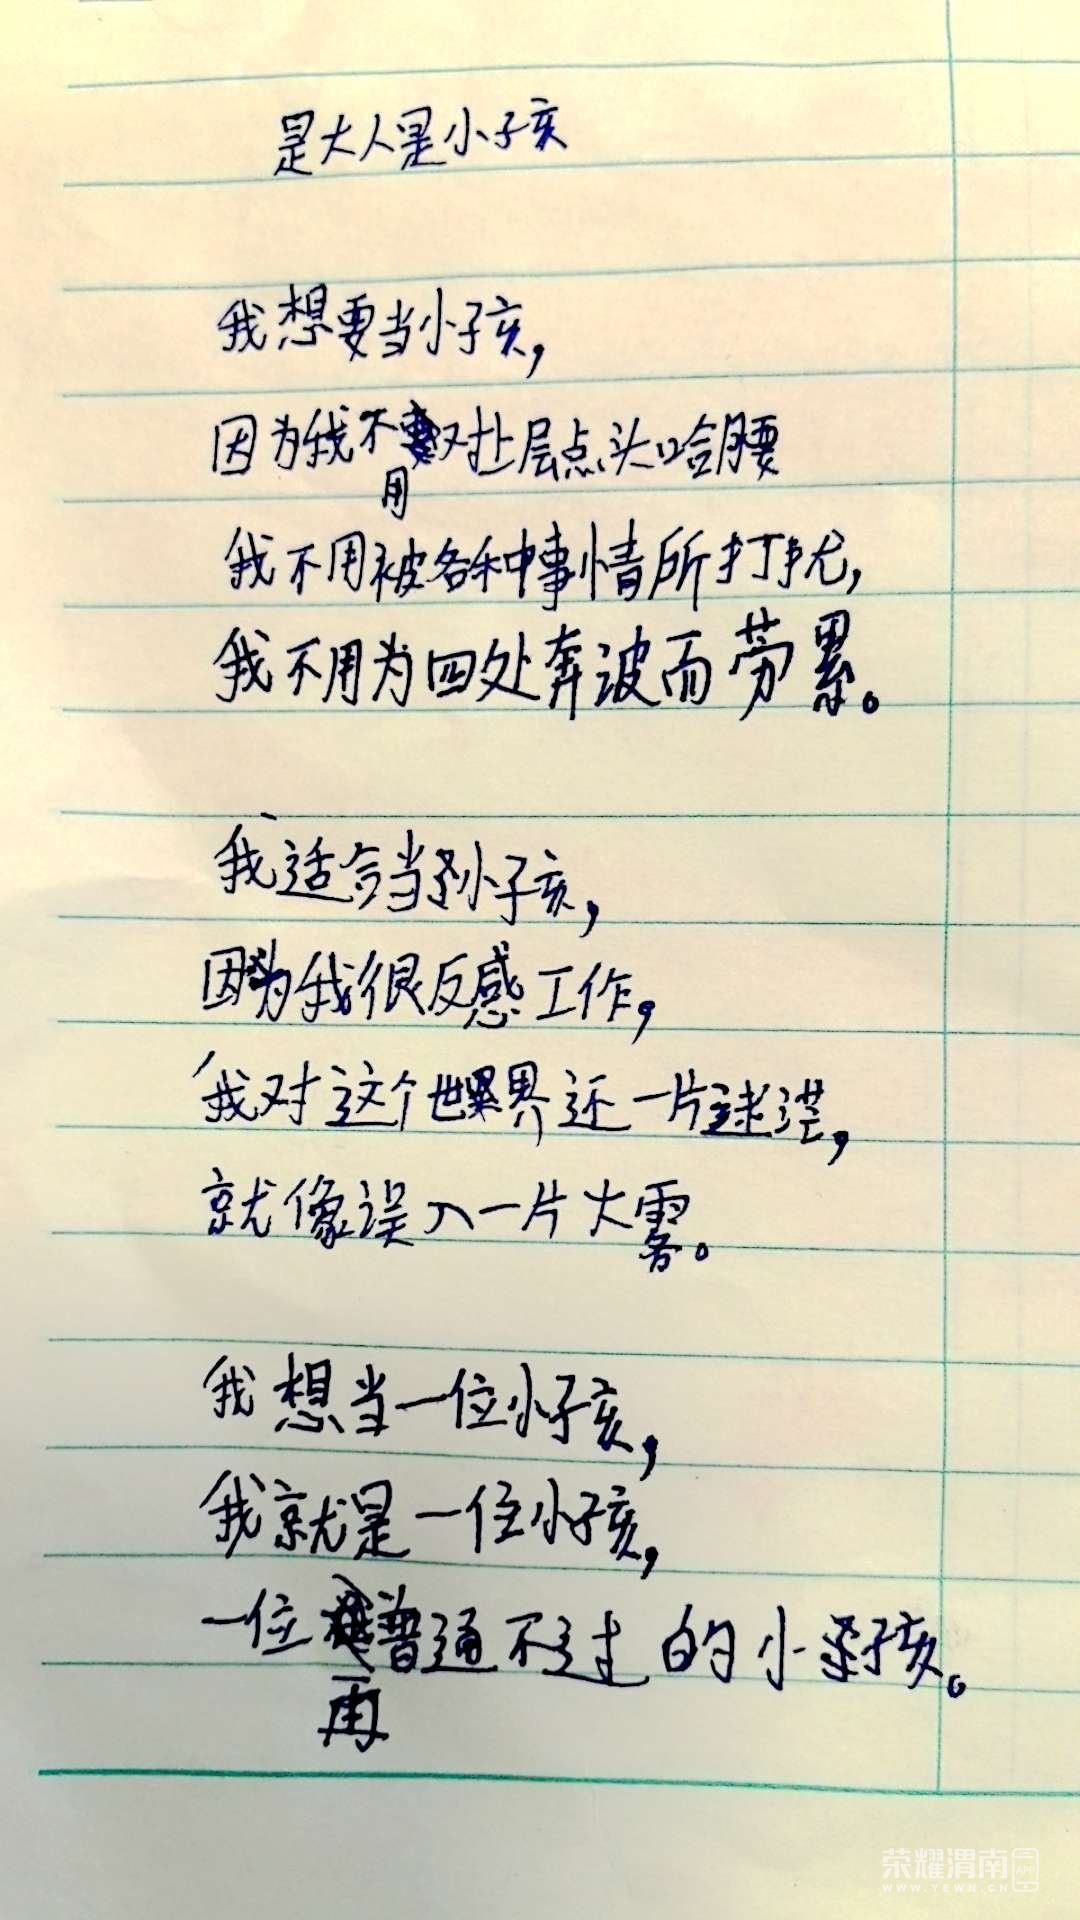 是大人是小孩
我想要当小孩，
因为我不用对上层点头哈腰
我不用被各种事情所打扰，
我不用为四处奔波而劳累。
我适合当小孩，
因为我很反感工作，
我对这个世界还一片迷茫，
就像误入一片大雾。
我想当一位小孩，
我就是一位小孩，
一位再普通不过的小孩。
荣耀渭南 APP
WWW.YEWN.CN